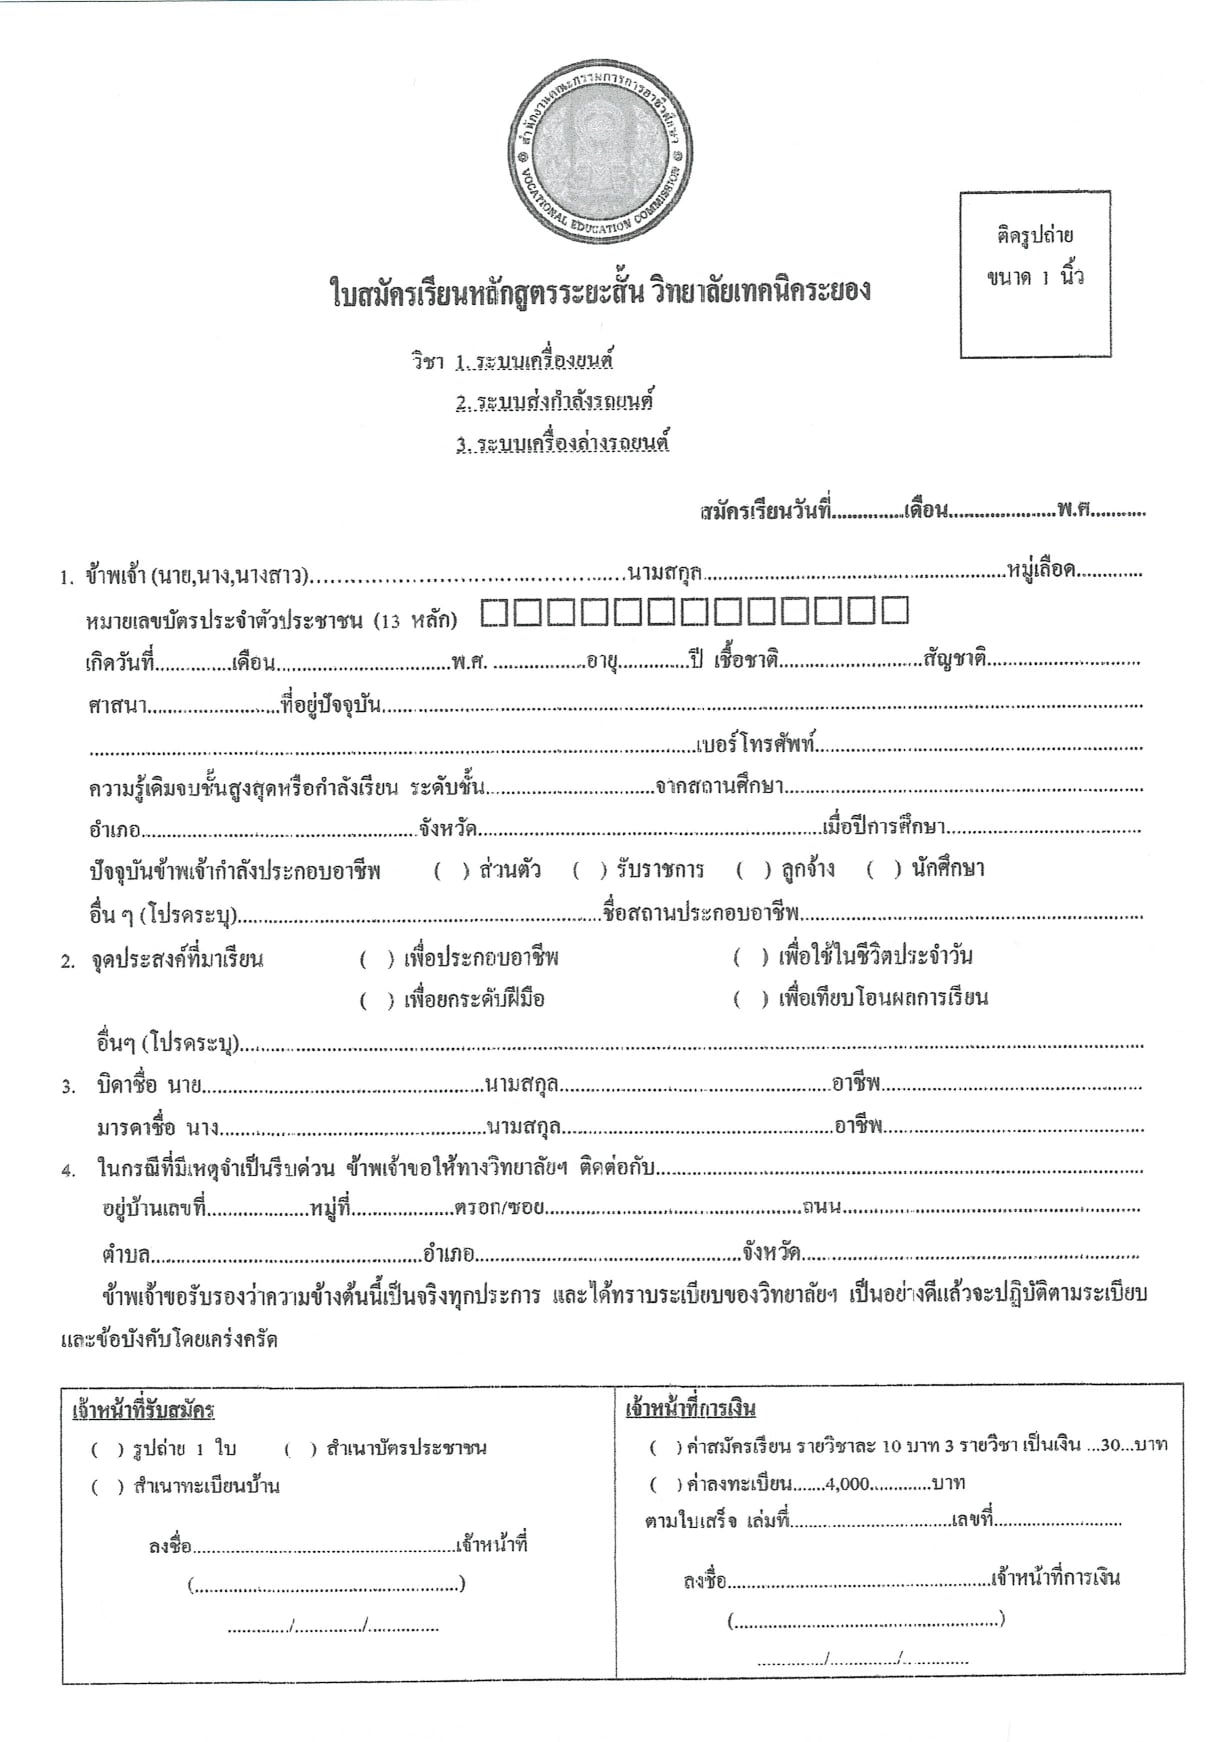 สำนักงานคณะกรรมการการอาชีวศึกษา
VOCATIONAL EDUCATION COMMISSION
ติดรูปถ่าย
ขนาด 1 นิ้ว
ใบสมัครเรียนหลักสูตรระยะสั้น วิทยาลัยเทคนิคระยอง
วิชา 1. ระบบเครื่องยนต์
2. ระบบส่งกำลังรถยนต์
3. ระบบเครื่องล่างรถยนต์
สมัครเรียนวันที่..............เดือน.....................พ.ศ...........
1. ข้าพเจ้า (นาย,นาง,นางสาว)..........................................นามสกุล..........................................................หมู่เลือด.............
หมายเลขบัตรประจำตัวประชาชน (13 หลัก) □□□□□□□□□□□□□
เกิดวันที่...............เดือน..................................พ.ศ. ..................อายุ..............ปี เชื้อชาติ............................สัญชาติ..............................
ศาสนา..........................ที่อยู่ปัจจุบัน....................................................................................................................
......................................................................................................เบอร์โทรศัพท์................................................................
ความรู้เดิมจบชั้นสูงสุดหรือกำลังเรียน ระดับชั้น.................................จากสถานศึกษา......................................................................
อำเภอ......................................................จังหวัด...................................................................เมื่อปีการศึกษา......................................
ปัจจุบันข้าพเจ้ากำลังประกอบอาชีพ ( ) ส่วนตัว ( ) รับราชการ ( ) ลูกจ้าง ( ) นักศึกษา
อื่น ๆ (โปรดระบุ).......................................................................ชื่อสถานประกอบอาชีพ...................................................................
2. จุดประสงค์ที่มาเรียน ( ) เพื่อประกอบอาชีพ ( ) เพื่อใช้ในชีวิตประจำวัน
( ) เพื่อยกระดับฝีมือ ( ) เพื่อเทียบโอนผลการเรียน
อื่นๆ (โปรดระบุ)..............................................................................................................................................
3. บิดาชื่อ นาย.......................................................นามสกุล.....................................................อาชีพ...................................................
มารดาชื่อ นาง....................................................นามสกุล.....................................................อาชีพ...................................................
4. ในกรณีที่มีเหตุจำเป็นรีบด่วน ข้าพเจ้าขอให้ทางวิทยาลัยฯ ติดต่อกับ...............................................................................................
อยู่บ้านเลขที่....................หมู่ที่....................ตรอก/ซอย..................................................ถนน..........................................................
ตำบล.....................................................อำเภอ....................................................จังหวัด..................................................................
ข้าพเจ้าขอรับรองว่าความข้างต้นนี้เป็นจริงทุกประการ และได้ทราบระเบียบของวิทยาลัยฯ เป็นอย่างดีแล้วจะปฏิบัติตามระเบียบ
และข้อบังคับโดยเคร่งครัด
เจ้าหน้าที่รับสมัคร
( ) รูปถ่าย 1 ใบ ( ) สำเนาบัตรประชาชน
( ) สำเนาทะเบียนบ้าน
ลงชื่อ........................................................เจ้าหน้าที่
(........................................................)
............./............../...............
เจ้าหน้าที่การเงิน
( ) ค่าสมัครเรียน รายวิชาละ 10 บาท 3 รายวิชา เป็นเงิน ...30...บาท
( ) ค่าลงทะเบียน.......4,000.............บาท
ตามใบเสร็จ เล่มที่..................................เลขที่...........................
ลงชื่อ........................................................เจ้าหน้าที่การเงิน
(........................................................)
............../............../...............